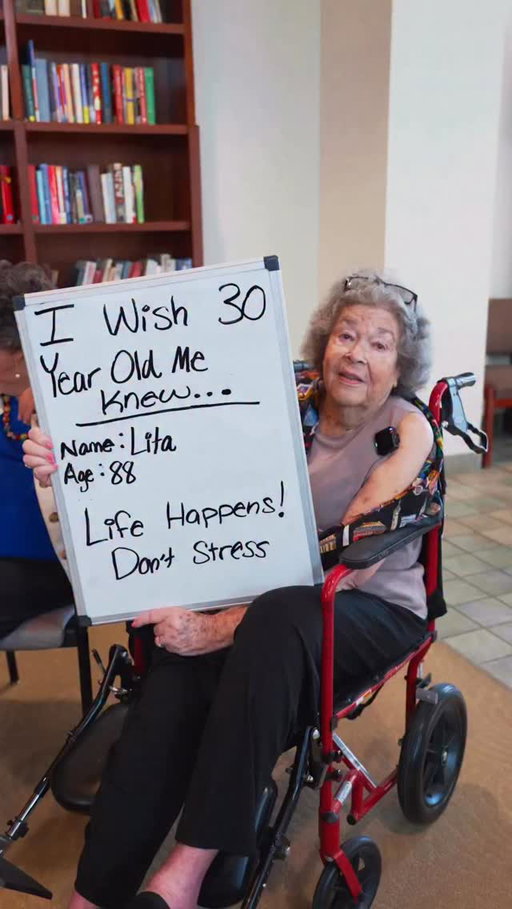 I Wish 30
Year Old Me
Knew...
Name: Lita
Age: 88
Life Happens!
Don't Stress